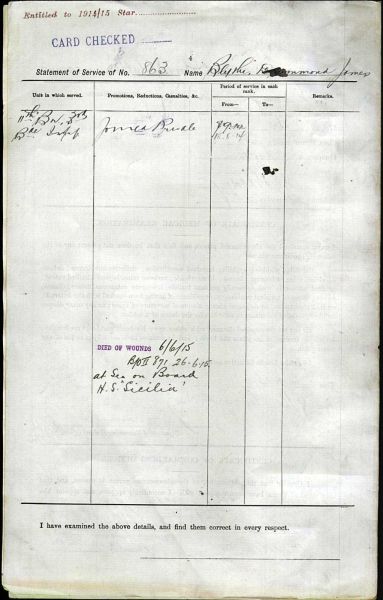 Entitled to 1914/15 Star
CARD CHECKED
Statement of Service of No. 863 Name Blythe, James
Unit in which served.
Promotions, Reductions, Casualties, &c.
Period of service in each rank.
From—
To—
Remarks.
11th Bn. 3rd
Bde Inf
Joined Private
DIED OF WOUNDS 6/6/15
871 26-6-15
at Sea on Board
H.S. "Sicilia"
I have examined the above details, and find them correct in every respect.